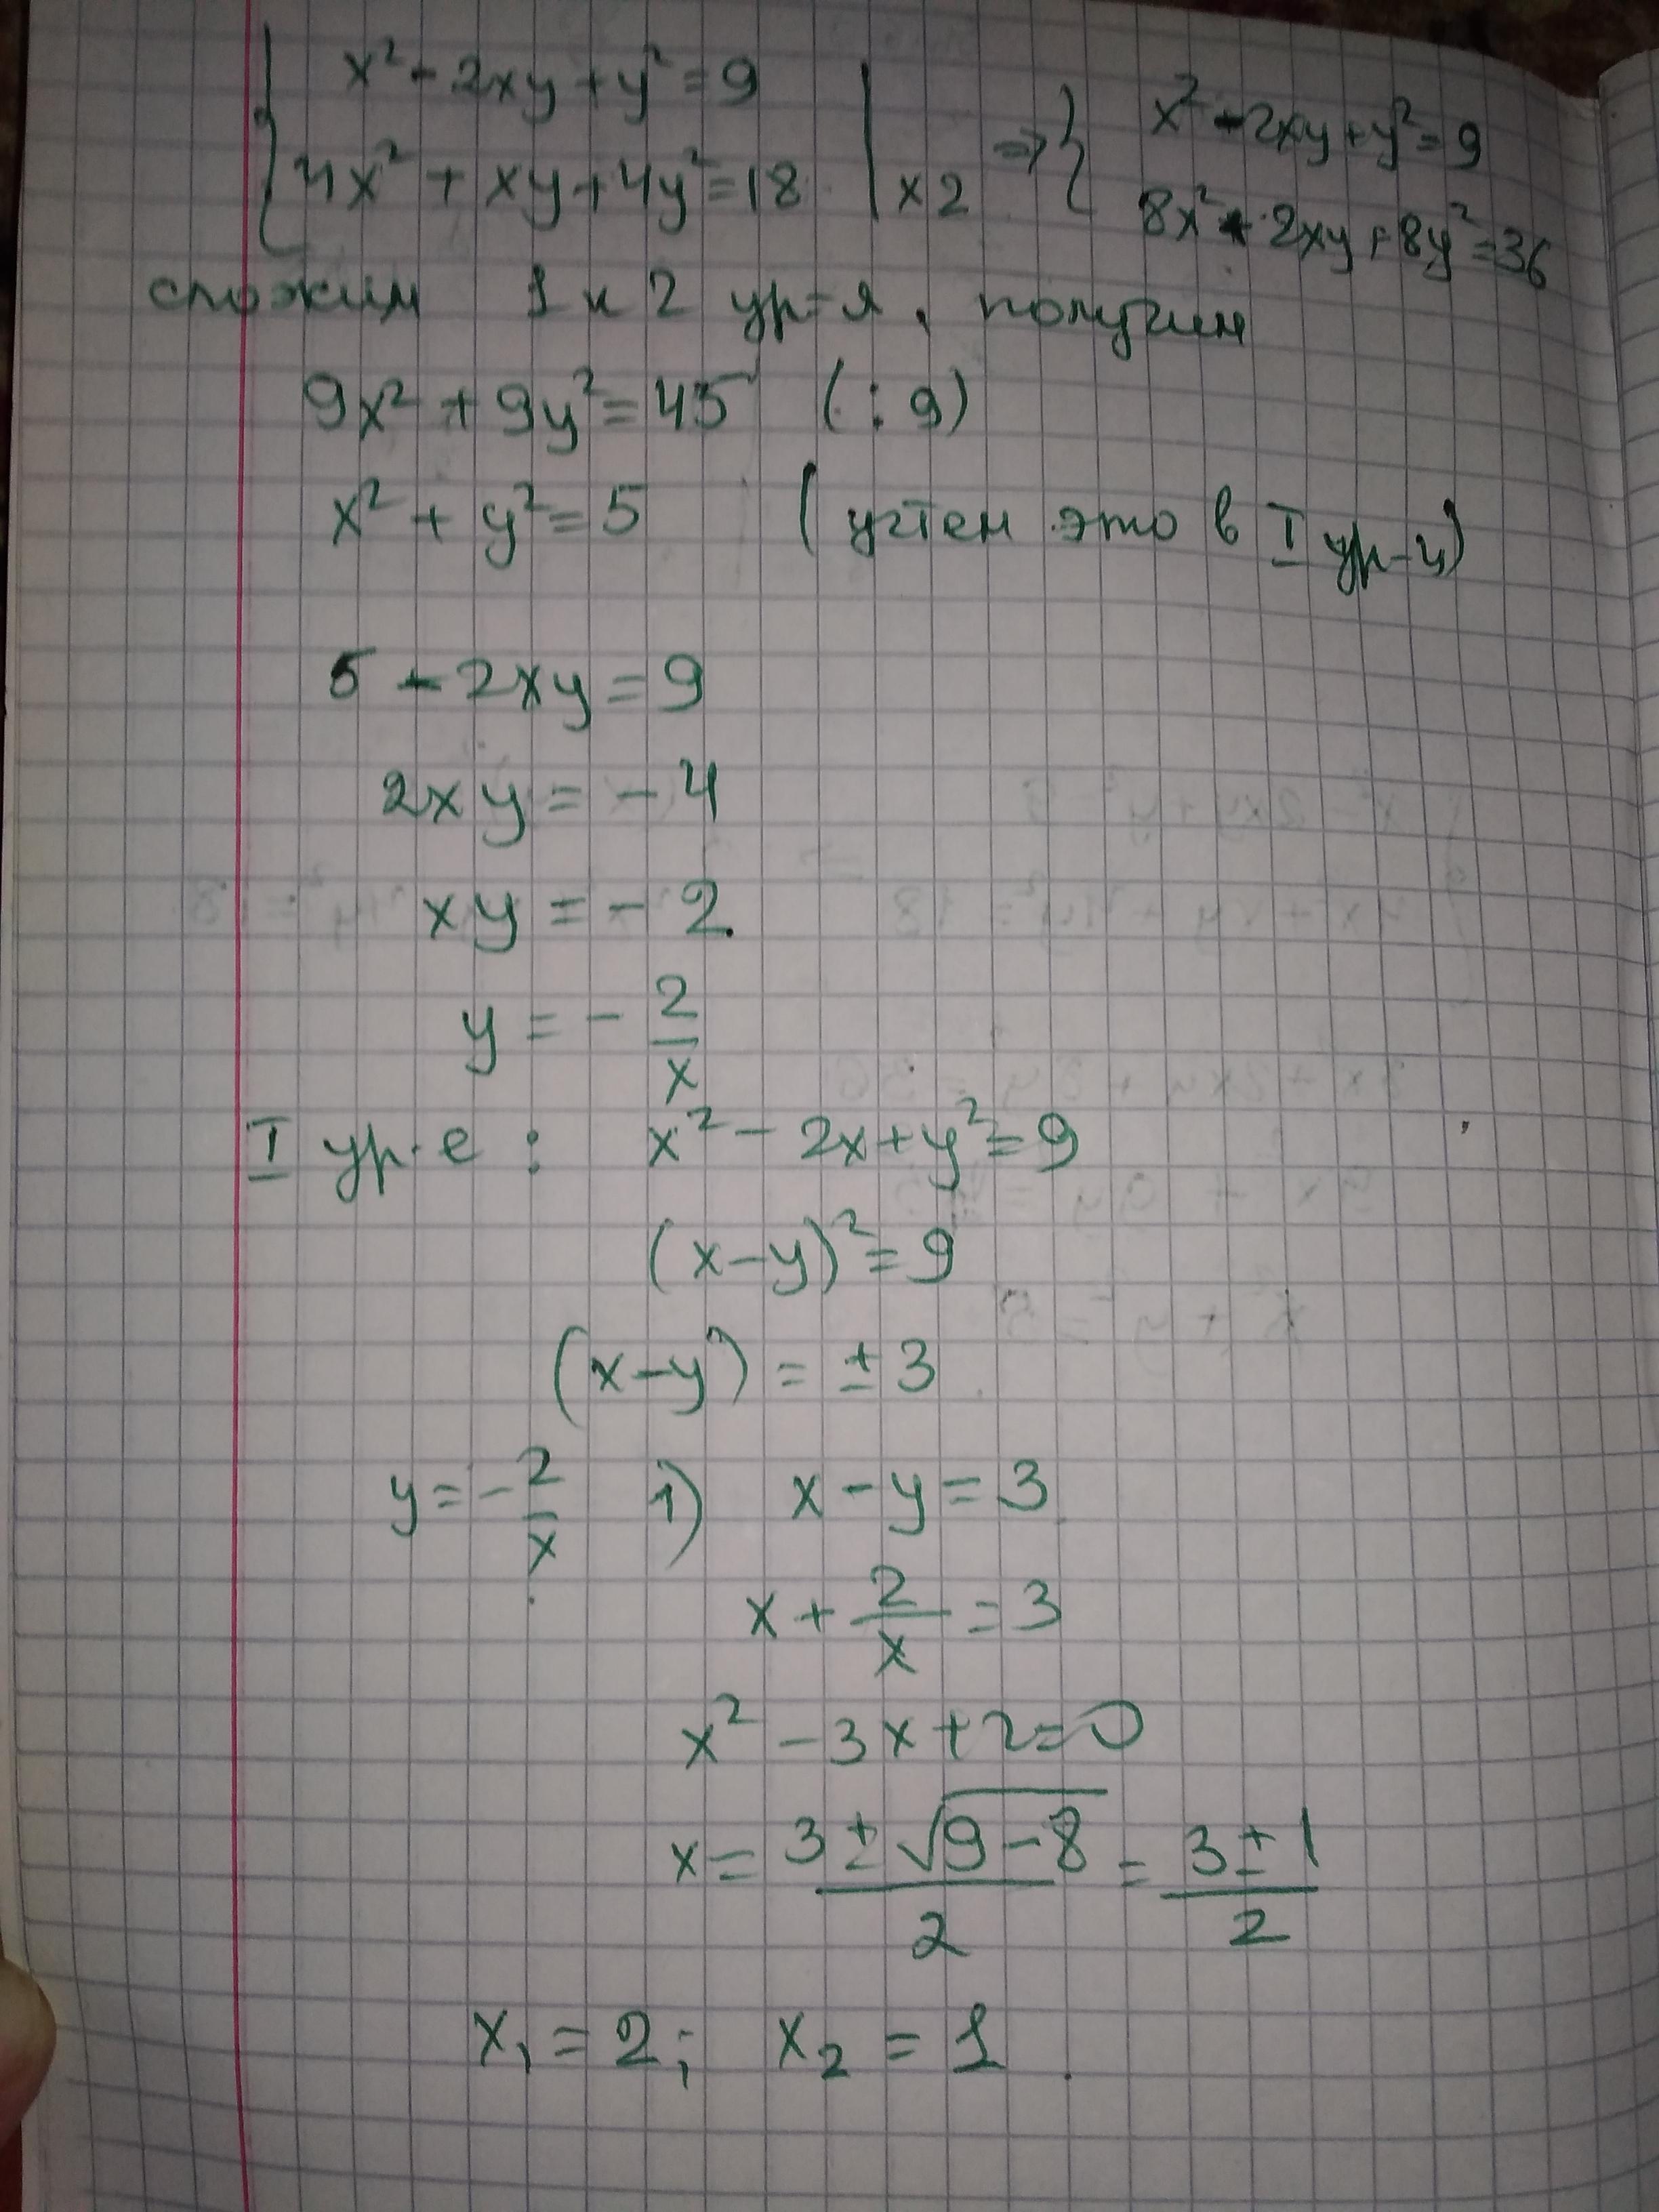 { x² - 2xy + y² = 9 | ⇒ { x² - 2xy + y² = 9
4x² + xy + 4y² = 18 | x 2 8x² + 2xy + 8y² = 36
сложим 1 и 2 ур-я, получим
9x² + 9y² = 45 (: 9)
x² + y² = 5 (учтем это в I ур-и)
5 - 2xy = 9
2xy = - 4
xy = - 2.
y = - 2/x
I ур-е : x² - 2x + y² = 9
(x - y)² = 9
(x - y) = ± 3
y = - 2/x 1) x - y = 3
x + 2/x = 3
x² - 3x + 2 = 0
x = (3 ± √(9 - 8))/2 = (3 ± 1)/2
x₁ = 2; x₂ = 1